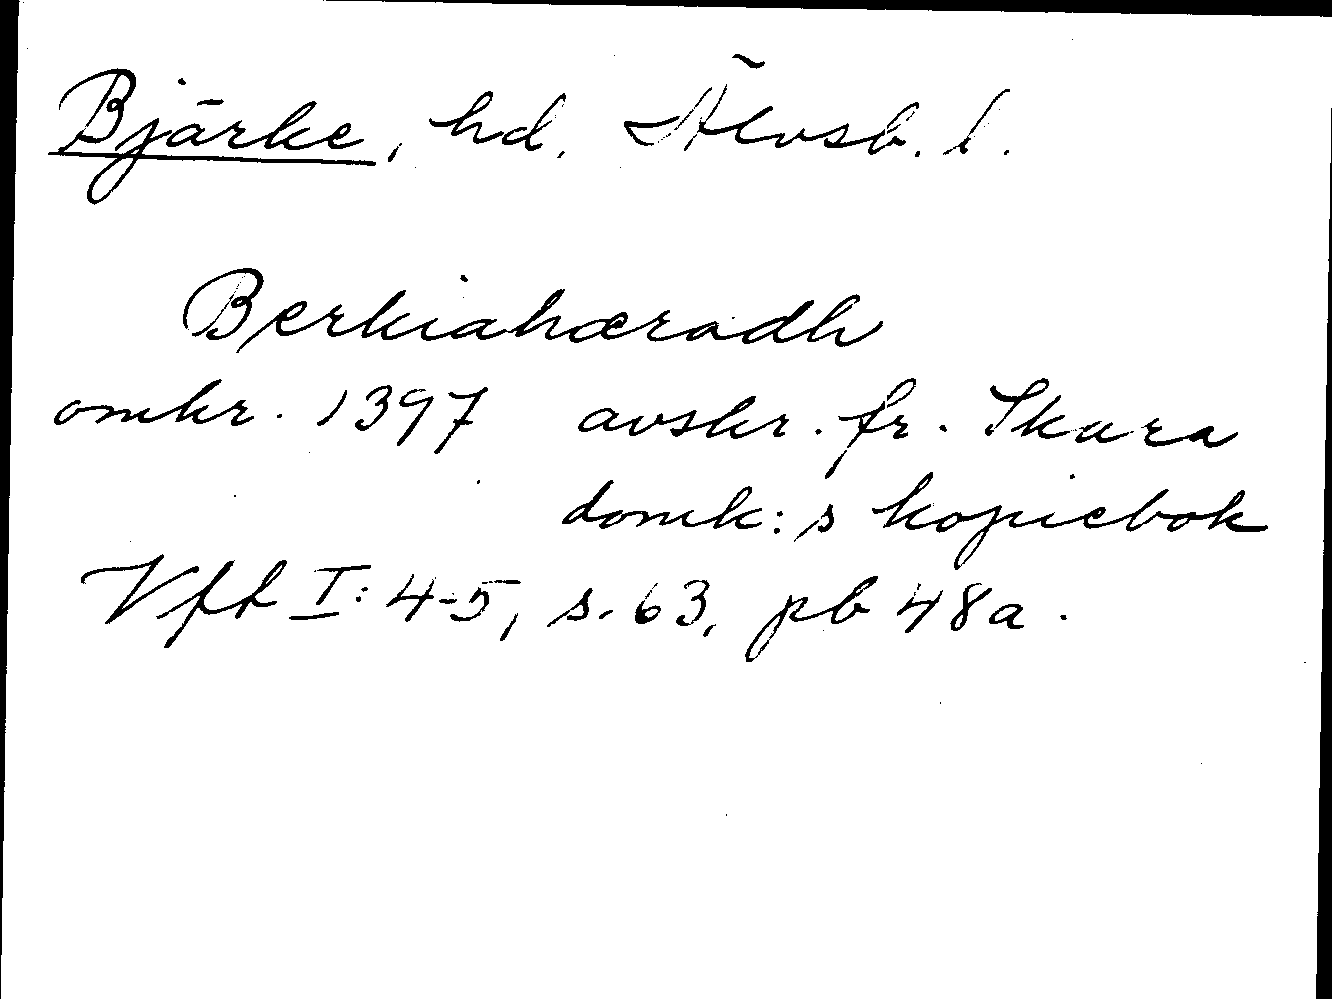 Bjärke, hd. Älvsb. l.
Berkiahæradh
omkr. 1397 avskr. fr. Skara
domk:s kopiebok
Vft I: 4-5, s. 63, pb 48a.